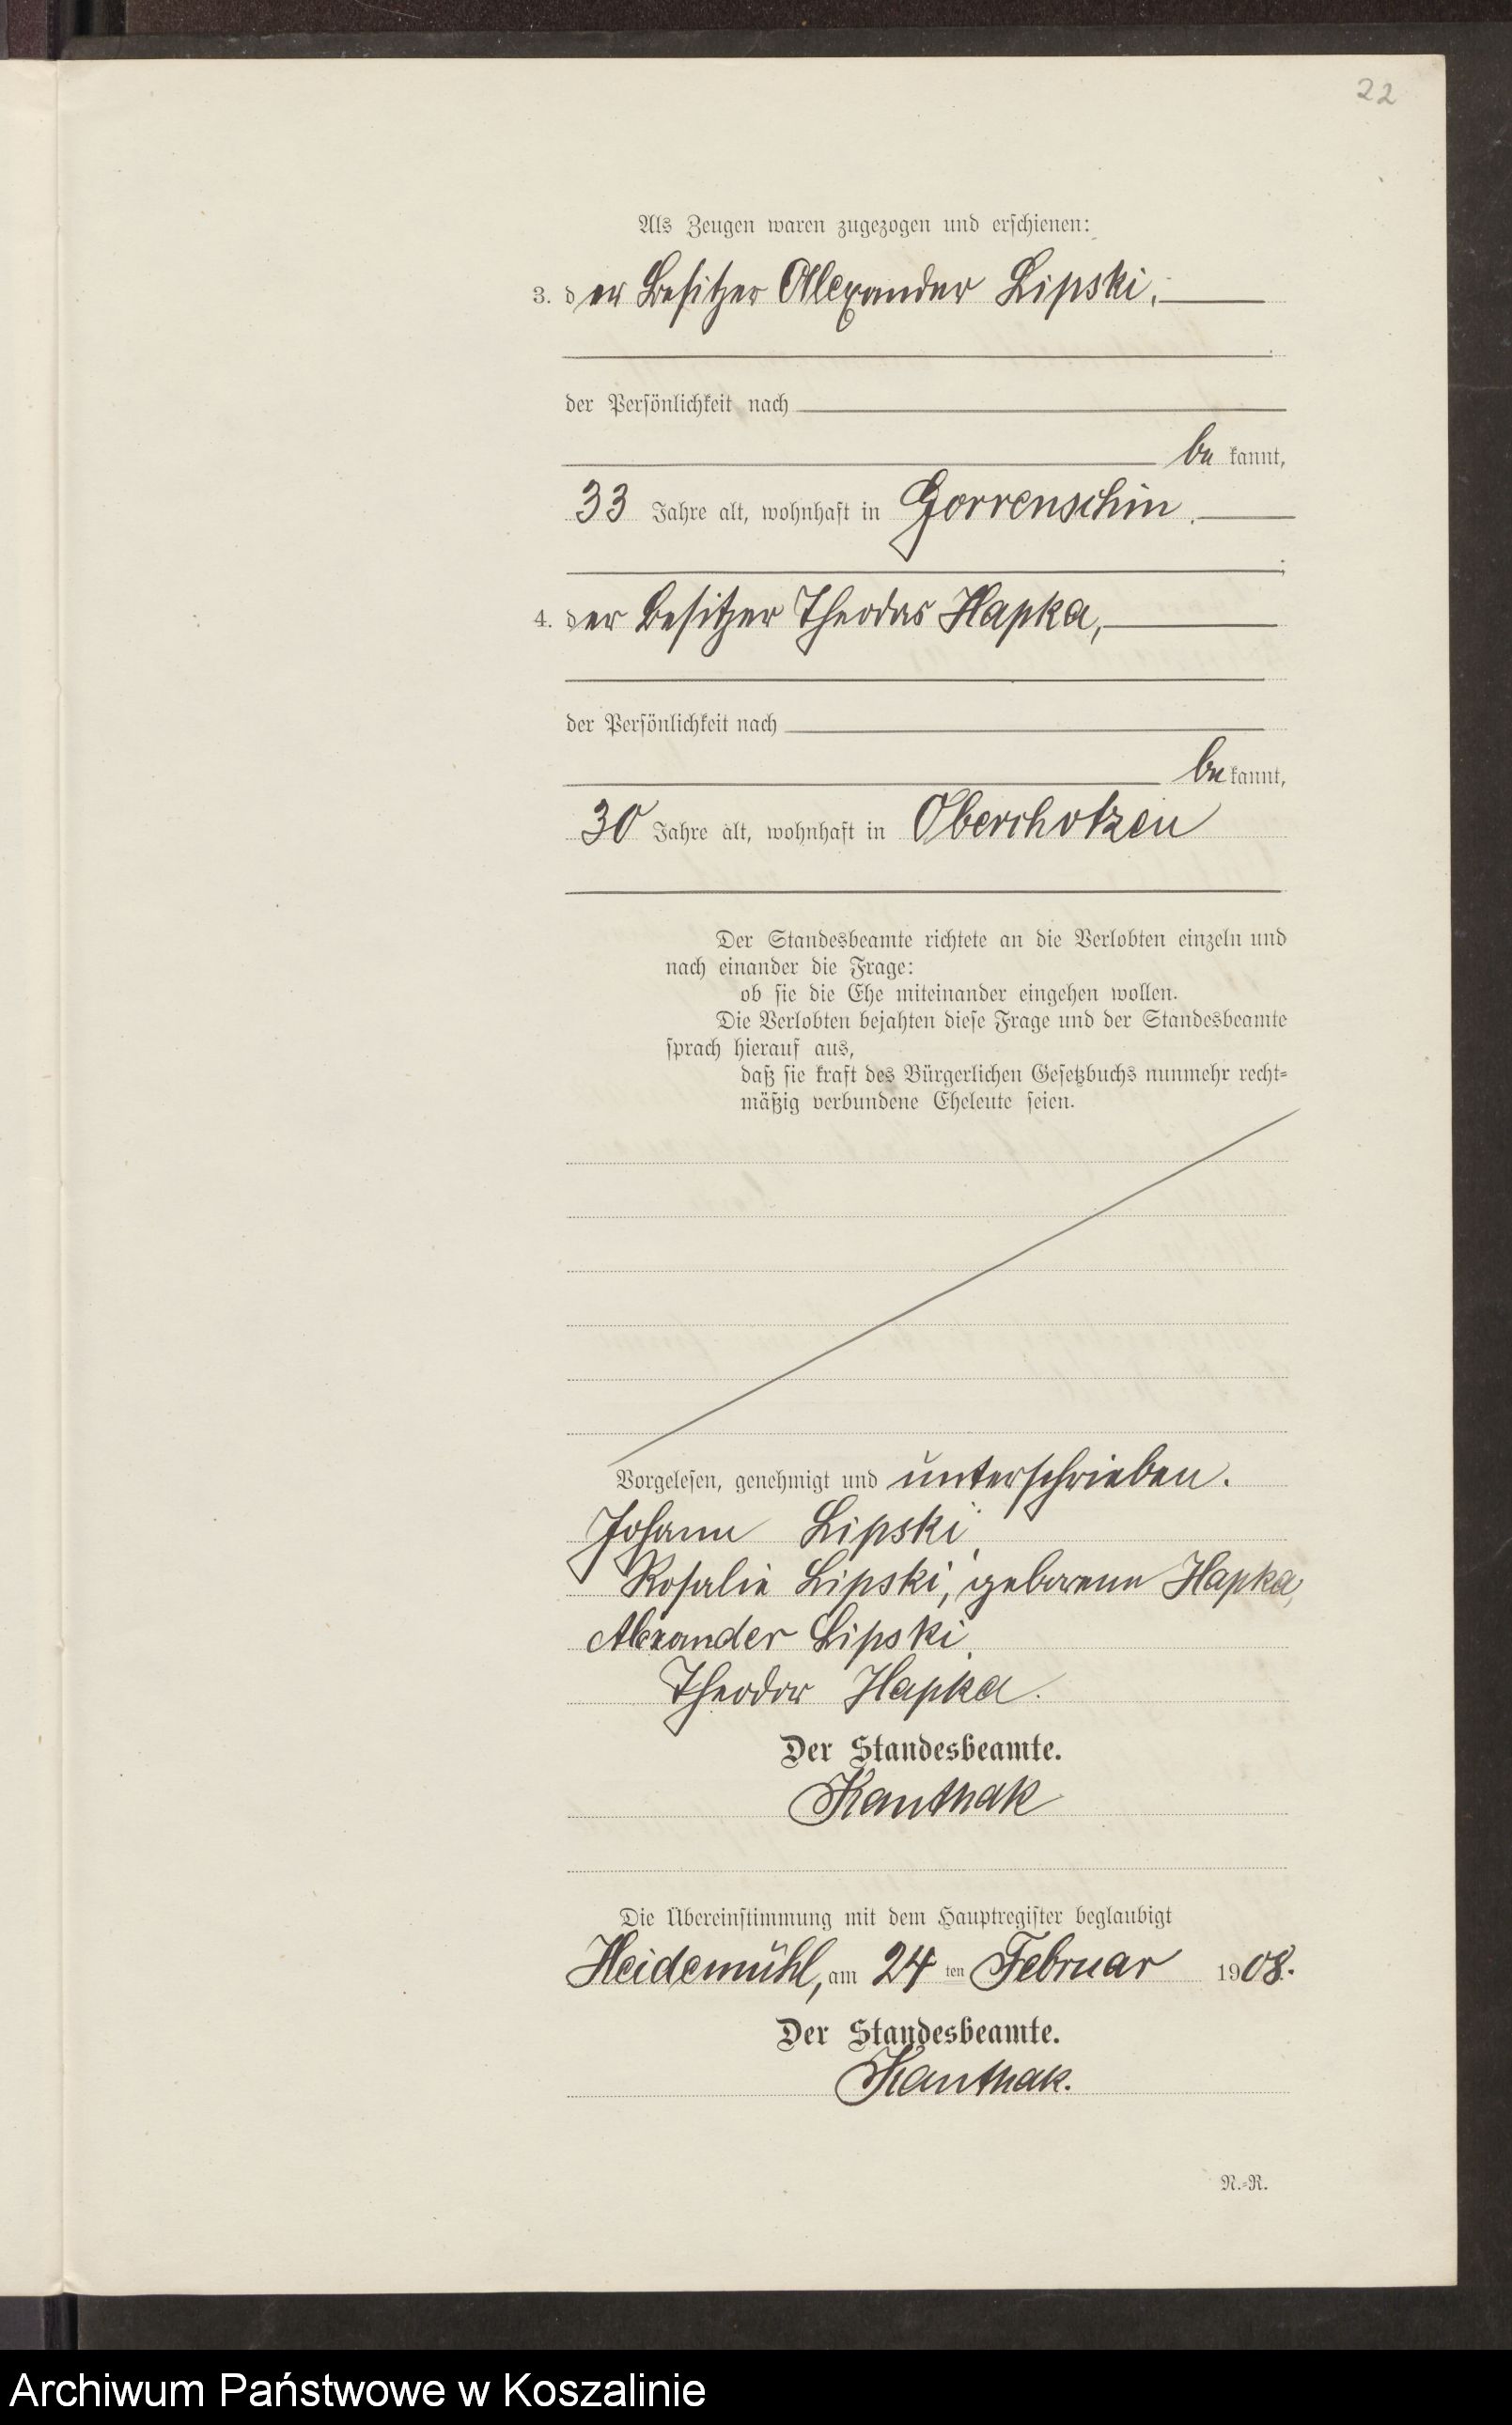 22
Als Zeugen waren zugezogen und erschienen:
3. der Besitzer Alexander Lipski,
der Persönlichkeit nach
bekannt,
33 Jahre alt, wohnhaft in Gorrenschin
;
4. der Besitzer Theodor Hapka,
der Persönlichkeit nach
bekannt,
30 Jahre alt, wohnhaft in Oberchotzen
Der Standesbeamte richtete an die Verlobten einzeln und
nach einander die Frage:
ob sie die Ehe miteinander eingehen wollen.
Die Verlobten bejahten diese Frage und der Standesbeamte
sprach hierauf aus,
daß sie kraft des Bürgerlichen Gesetzbuchs nunmehr recht-
mäßig verbundene Eheleute seien.
Vorgelesen, genehmigt und unterschrieben.
Johann Lipski,
Rosalie Lipski, geborene Hapka,
Alexander Lipski,
Theodor Hapka.
Der Standesbeamte.
Kanthak
Die Übereinstimmung mit dem Hauptregister beglaubigt
Heidemühl, am 24 ten Februar 1908.
Der Standesbeamte.
Kanthak.
N.-R.
Archiwum Państwowe w Koszalinie